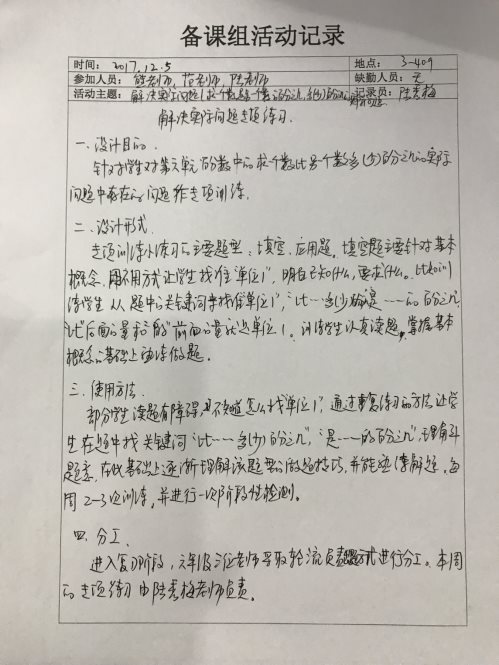 备课组活动记录
时间： 2017.12.5 地点： 3-409
参加人员： 老师、范老师、陆老师 缺勤人员： 无
活动主题： 解决实际问题(求一个数是另一个数的百分之几 记录员： 陆秀梅
解决实际问题专项练习.
一、设计目的.
针对学生对第六单元百分数中的求一个数比另一个数多(少)百分之几的实际
问题中存在的问题作专项训练.
二、设计形式.
专项训练以练习的主要题型:填空、应用题。填空题主要针对基本
概念,用不同方式让学生找准"单位1",明白已知什么,要求什么。比如训
练学生从题中的关键词寻找准"单位1","比……多(少) 是……的百分之几"
"比"后面的量 "的"前面的量就是单位1。训练学生认真读题,掌握基本
概念的基础上边读做题。
三、使用方法.
部分学生读题有障碍,不知道怎么找"单位1",通过重复练习的方法让学
生在题中找关键词"比……多(少)百分之几","是……的百分之几",理解
题意,在此基础上逐渐理解该题型的做题技巧,并能熟练解题。每
周2-3次训练,并进行一次阶段性检测。
四、分工.
进入复习阶段,六年级三位老师采取轮流负责 方式进行分工。本周
的专项练习由陆秀梅老师负责。